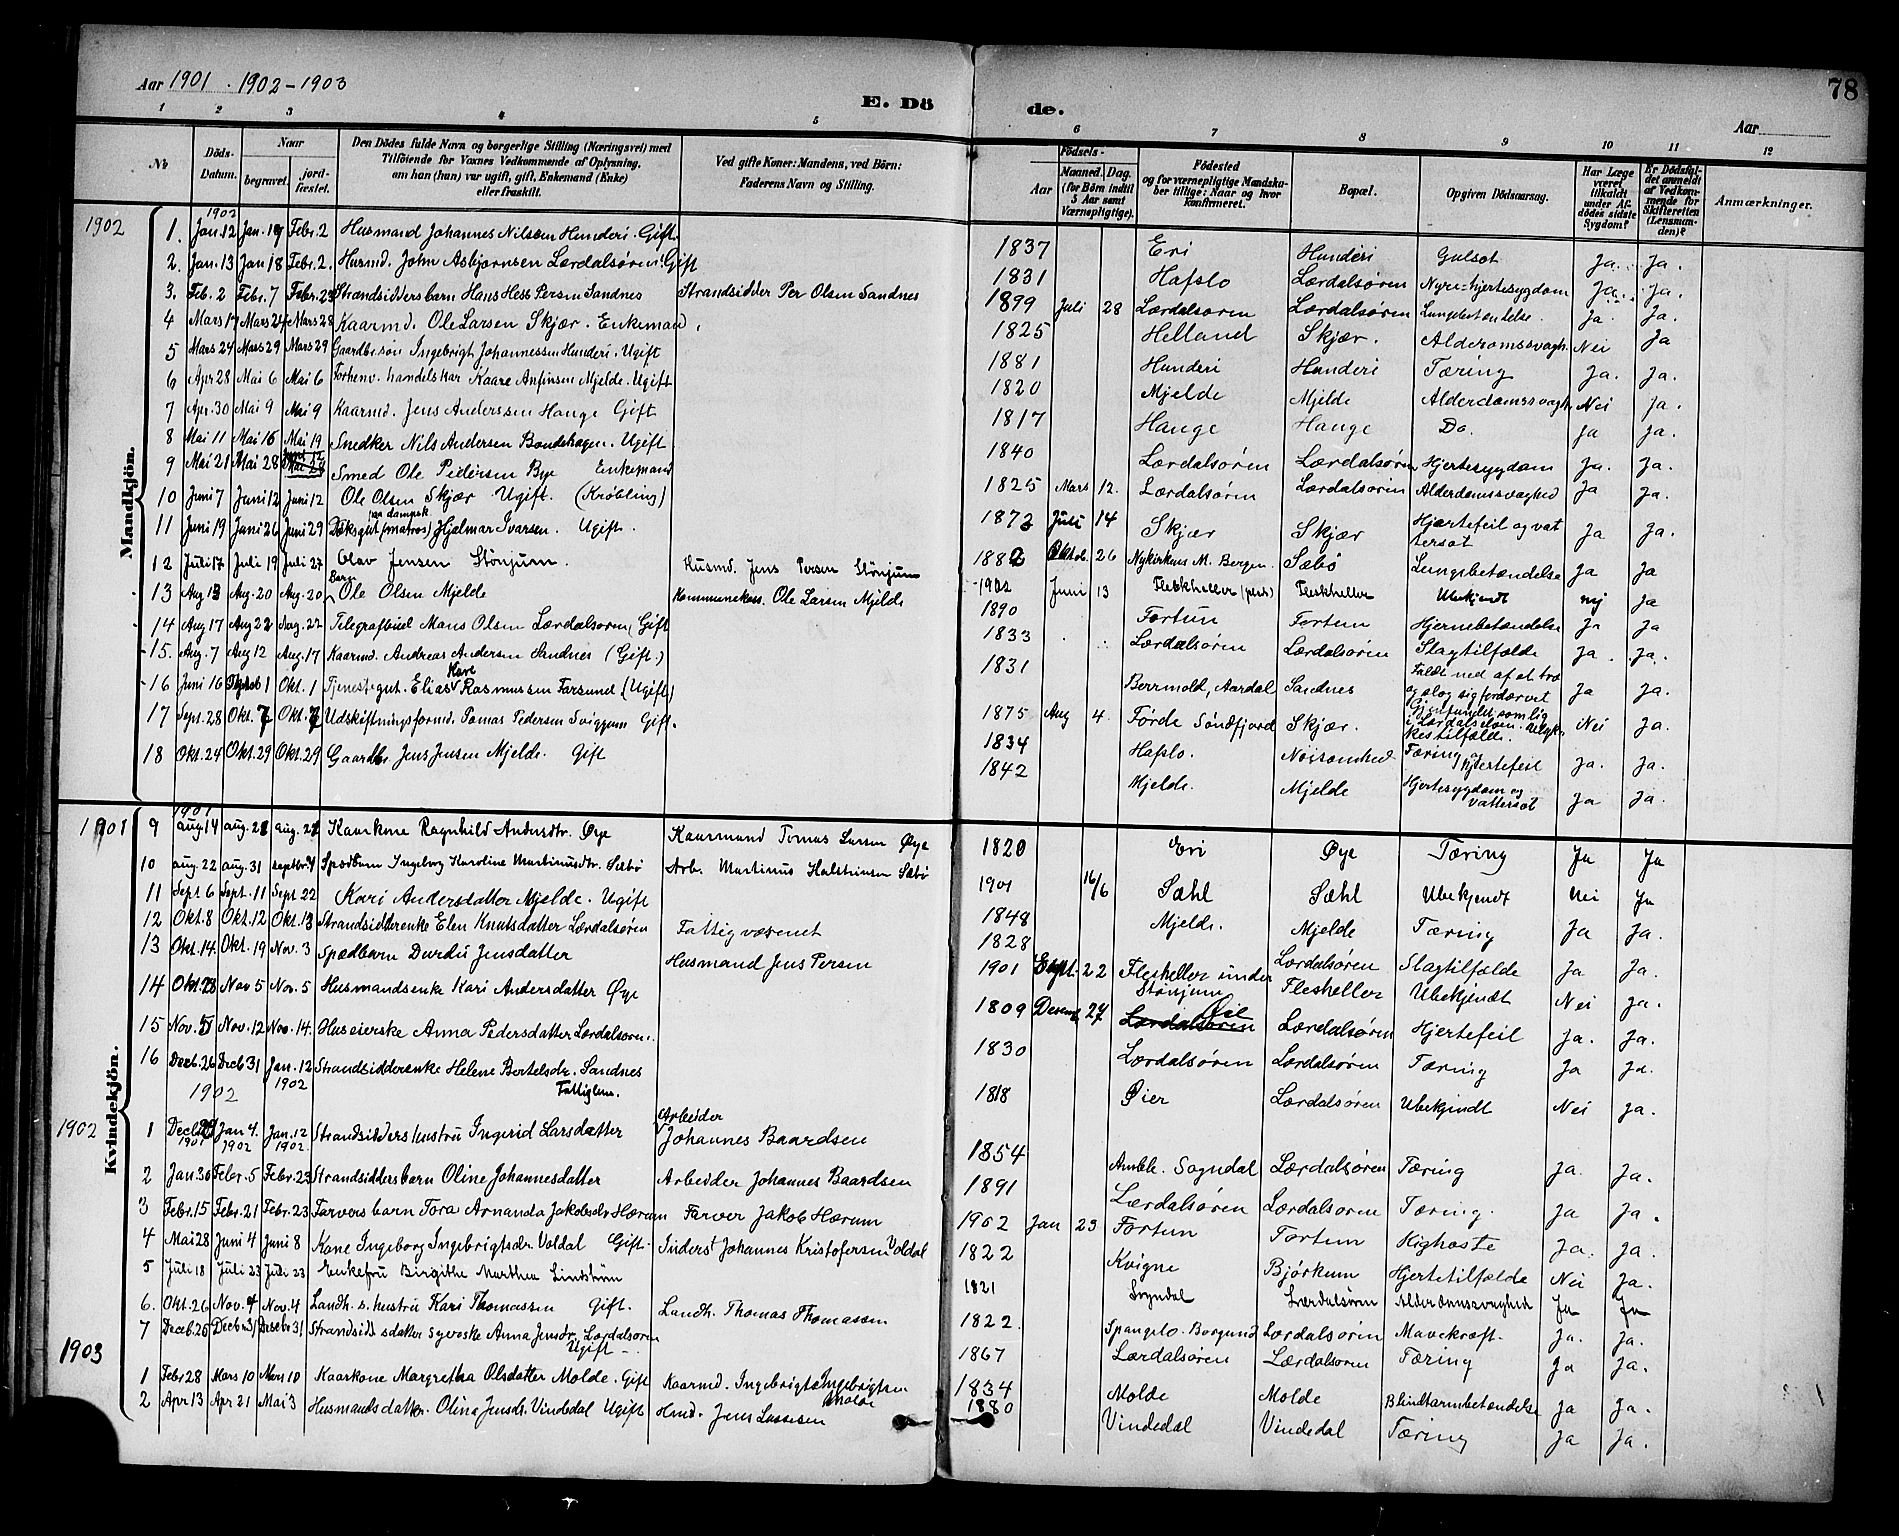 Aar 1901. 1902-1903
E. Dö
de.
78
Aar
1 2 3 4 5 6 7 8 9 10 11 12
No
Döds-Datum.
Naar
begravet.
jord-fæstet.
Den Dödes fulde Navn og borgerlige Stilling (Næringsvei) med
Tilföiende for Voxnes Vedkommende af Oplysning,
om han (hun) var ugift, gift, Enkemand (Enke)
eller fraskilt.
Ved gifte Koner: Mandens, ved Börn:
Faderens Navn og Stilling.
Födsels-
Aar
Maaned. Dag.
(for Börn indtil
5 Aar samt
Værnepligtige).
Födested
og for værnepligtige Mandska-
ber tillige: Naar og hvor
konfirmeret.
Bopæl.
Opgiven Dödsaarsag.
Har Læge
været
tilkaldt
under Af-
dödes sidste
Sygdom?
Er Dödsfal-
det anmeldt
af Vedkom-
mende for
Skifteretten
(Lensman-
den)?
Anmærkninger.
Mandkjön.
1902
1902
1. Jan. 12 Jan. 19 Febr. 2 Husmand Johannes Nilsen Hunderi. Gift 1837 Eri Hunderi Gulsot Ja. Ja.
2. Jan. 13 Jan 18 Febr. 2. Husmd. John Asbjørnsen Lærdalsøren. Gift 1831 Hafslo Lærdalsøren Nyre=hjertesygdom Ja. Ja.
3. Feb. 2 Febr. 7 Febr. 23 Strandsiddersbarn Hans Hess Persen Sandnes Strandsidder Per Olsen Sandnes 1899 Juli 28 Lærdalsøren Lærdalsøren Lungebetændelse. Ja. Ja.
4 Mars 17 Mars 24 Mars 28 Kaarmd. Ole Larsen Skjær. Enkemand 1825 Helland Skjær. Alderomssvagh. Nei Ja
5 Mars 24 Mars 29 Mars 29 Gaardbr. søn Ingebrigt Johannessen Hunderi. Ugift 1881 Hunderi Hunderi Tæring Ja. Ja.
6 Apr 28 Mai 6 Mai 6 Forhenv. handelskar Kaare Anfinsen Mjelde. Ugift 1820 Mjelde Mjelde Alderdomssvagh. Nei Ja.
7 Apr. 30 Mai 9 Mai 9 Kaarmd. Jens Anderssen Hauge Gift 1817 Hauge Hauge Do. Ja Ja.
8 Mai 11 Mai 16 Mai 19 Snedker Nils Andersen Bondehagen. Ugift 1840 Lærdalsøren Lærdalsøren Hjertesygdom Ja. Ja.
9 Mai 21 Mai 28 Juni 12 Smed Ole Pedersen Bye Enkemand 1825 Mars 12. Lærdalsøren Lærdalsøren Alderdomssvaghed Ja Ja.
10 Juni 7 Juni 12 Juni 12 Ole Olsen Skjær Ugift. (Krøbling) 1873 Juli 14 Skjær Skjær Hjertefeil og vattersot Ja Ja.
11 Juni 19 Juni 26 Juni 29 Dæksgut (matros) paa dampsk. Hjalmar Ivarsen. Ugift. 1882 Oktob. 26 Nykirkens M. Bergen. Sæbø Lungebetændelse Ja Ja
12 Juli 17 Juli 19 Juli 27 Olav Jensen Stønjum. Husmd. Jens Persen Stønjum 1902 Juni 13 Fleskheller Fleskheller Ubekjendt nej Ja
13 Aug 13 Aug. 20 Aug. 20 Ole Olsen Mjelde Kommunekass. Ole Larsen Mjelde 1890 Fortun Fortun Hjernebetændelse Ja Ja
14 Aug 17 Aug 22 Aug. 22 Telegrafbud Mons Olsen Lærdalsøren, Gift 1833 Lærdalsøren Lærdalsøren Slagtilfælde Ja. Ja.
15. Aug. 7 Aug 12 Aug. 17 Kaarmd. Andreas Andersen Sandnes (Gift.) 1831 Aardal Sandnes Faldt ned af et træ og slog sig fordærvet Ja Ja.
16 Juni 16 1 Okt. 1 Tjenestegut. Elias Kare Rasmussen Farsund (Ugift) 1875 Aug 4. Førde Søndfjord Skjær. Gjenfundet som lig i Lærdalselven. Ulykkestilfælde. Nei Ja.
17 Sept. 28 Okt. 7 Okt. 7 Udskiftningsformd. Tomas Pedersen Sviggum Gift. 1834 Hafslo. Nøisomhed Tæring og Hjertefeil Ja. Ja.
18 Okt. 24 Okt. 29 Okt. 29 Gaardbr. Jens Jensen Mjelde. Gift 1842 Mjelde. Mjelde Hjertesygdom og vattersot Ja Ja.
Kvindekjön.
1901
1901
9 Aug 14 Aug. 21 Aug. 21 Kaarkone Ragnhild Andersdtr. Øye Kaarmand Tomas Larsen Øye 1820 Eri Øye Tæring Ja Ja
10 Aug. 22 Aug. 31 Septbr 4 Spædbarn Ingeborg Karoline Martinusdtr. Sæbø Arb. Martinus Halstensen Sæbø 1901 16/6 Sæhl Sæhl Ubekjendt Nei Ja
11 Sept 6 Sept. 11 Sept 22 Kari Andersdatter Mjelde. Ugift 1848 Mjelde. Mjelde Tæring Ja Ja.
12 Okt. 8 Okt. 12 Okt. 13 Strandsidderenke Elen Knutsdatter Lærdalsøren Fattigvæsenet 1828 Lærdalsøren Slagtilfælde Ja Ja.
13 Okt. 14. Okt. 19 Nov. 3 Spædbarn Durdei Jensdatter Husmand Jens Persen 1901 Sept. 22 Fleskeller under Stønjum Fleskeller Ubekjendt Nei Ja.
14 Okt. 28 Nov 5 Nov. 5 Husmandsenke Kari Andersdatter Øye 1809 Decemb 27 Lærdalsøren Øie Lærdalsøren Hjertefeil Ja. Ja.
15 Nov. 5 Nov. 12 Nov. 14. Huseierske Anna Pedersdatter Lærdalsøren. 1830 Lærdalsøren Lærdalsøren Tæring Ja Ja.
16 Decb. 26 Decb 31 Jan. 12 1902 Strandsidderenke Helene Bertelsdr. Sandnes Fattiglem. 1818 Øier Lærdalsøren Ubekjendt Nei Ja.
1902
1902
1 Decb. 1901 Jan 4. 1902 Jan. 12 1902. Strandsidders hustru Ingerid Larsdatter Arbeider Johannes Baardsen 1854 Amble. Sogndal Lærdalsøren Tæring Ja. Ja.
2 Jan. 30 Febr. 5 Febr. 23 Strandsiddersbarn Oline Johannesdatter Arbeider Johannes Baardsen 1891 Lærdalsøren Lærdalsøren Tæring. Ja Ja.
3 Febr. 15 Febr. 21 Febr. 23 Farvers barn Tora Amanda Jakobsdr Hærum Farver Jakob Hærum 1902 Jan 23 Fortun Fortun Kighoste Ja. Ja.
4 Mai 28 Juni 4 Juni 8 Kone Ingeborg Ingebrigtsdr. Voldal Gift. Inderst Johannes Kristofersen Voldal 1822 Kvigne Bjørkum Hjertetilfælde Nei Ja.
5 Juli 18 Juli 23 Juli 23 Enkefru Birgithe Marthea Lindstrøm 1821 Sogndal Lærdalsøren Alderdomssvaghed Ja Ja
6. Okt. 26 Nov. 4 Nov. 4 Landh. s. hustru Kari Thomassen Gift. Landh. Thomas Thomassen 1822. Spangelo. Borgund Lærdalsøren Mavekræft. Ja. Ja.
7 Decb. 25 Decbr 31 Decbr 31 Strandsids datter syerske Anna Jensdr. Lærdalsøren Ugift 1867 Lærdalsøren Lærdalsøren Tæring Ja Ja.
1903
1 Febr 28 Mars 10 Mars 10 Kaarkone Margretha Olsdatter Molde. Gift Kaarmd. Ingebrigt Ingebrigtsen Molde 1834 Molde Molde Blindtarmbetændelse Ja Ja.
2 Apr 13 Apr 21 Mai 3 Husmandsdatter. Olina Jensdr. Vindedal Ugift Hmd. Jens Lassesen 1880 Vindedal Vindedal Tæring Ja Ja.